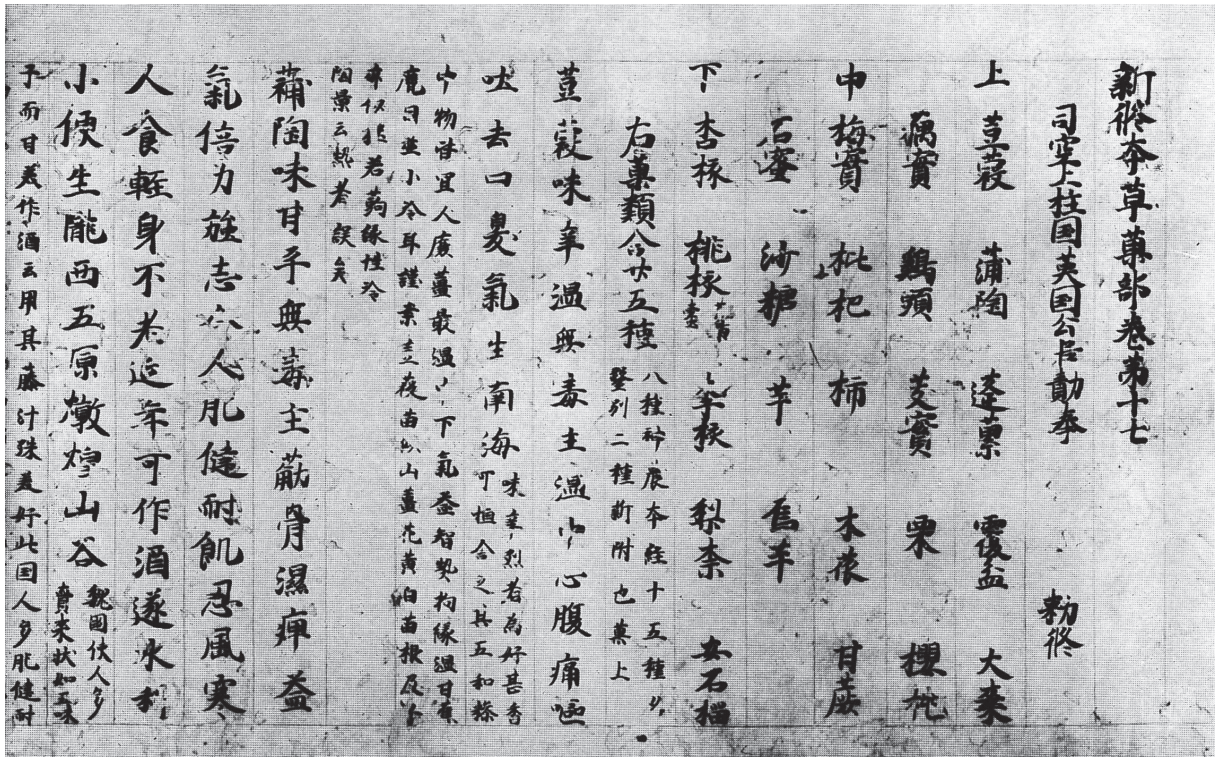 新修本草菓部卷第十七
司空上柱国英国公臣勣奉　勅修
上　荳蔲　蒲陶　蓬蔂　覆盆　大棗
藕實　鷄頭　芰實　栗　櫻桃
中　梅實　枇杷　柿　木苽　甘蔗
石蜜　沙糖　芋　烏芋
下　杏核　桃核　李核　梨　柰　安石榴
右菓類合廿五種
八種神農本經十五種名
醫別二種新附也菓上
荳蔲味辛溫無毒主溫中心腹痛嘔
吐去口臭氣生南海
味辛烈者為好甚香
可恒含之其五和糝
中物皆宜人廣薑最溫中下氣益智熱枸緣溫甘蕉
麂目並小冷耳謹案荳蔲苗似山薑花黃白苗根及子
亦似杜若蒟緣性冷
陶景云熱者誤矣
蒲陶味甘平無毒主筋骨濕痺益
氣倍力強志令人肥健耐飢忍風寒
人食輕身不老延年可作酒逐水利
小便生隴西五原燉煌山谷
魏國使人多
賫来状如五味
子而甘美作酒云用其藤汁殊美好此国人多肥健耐